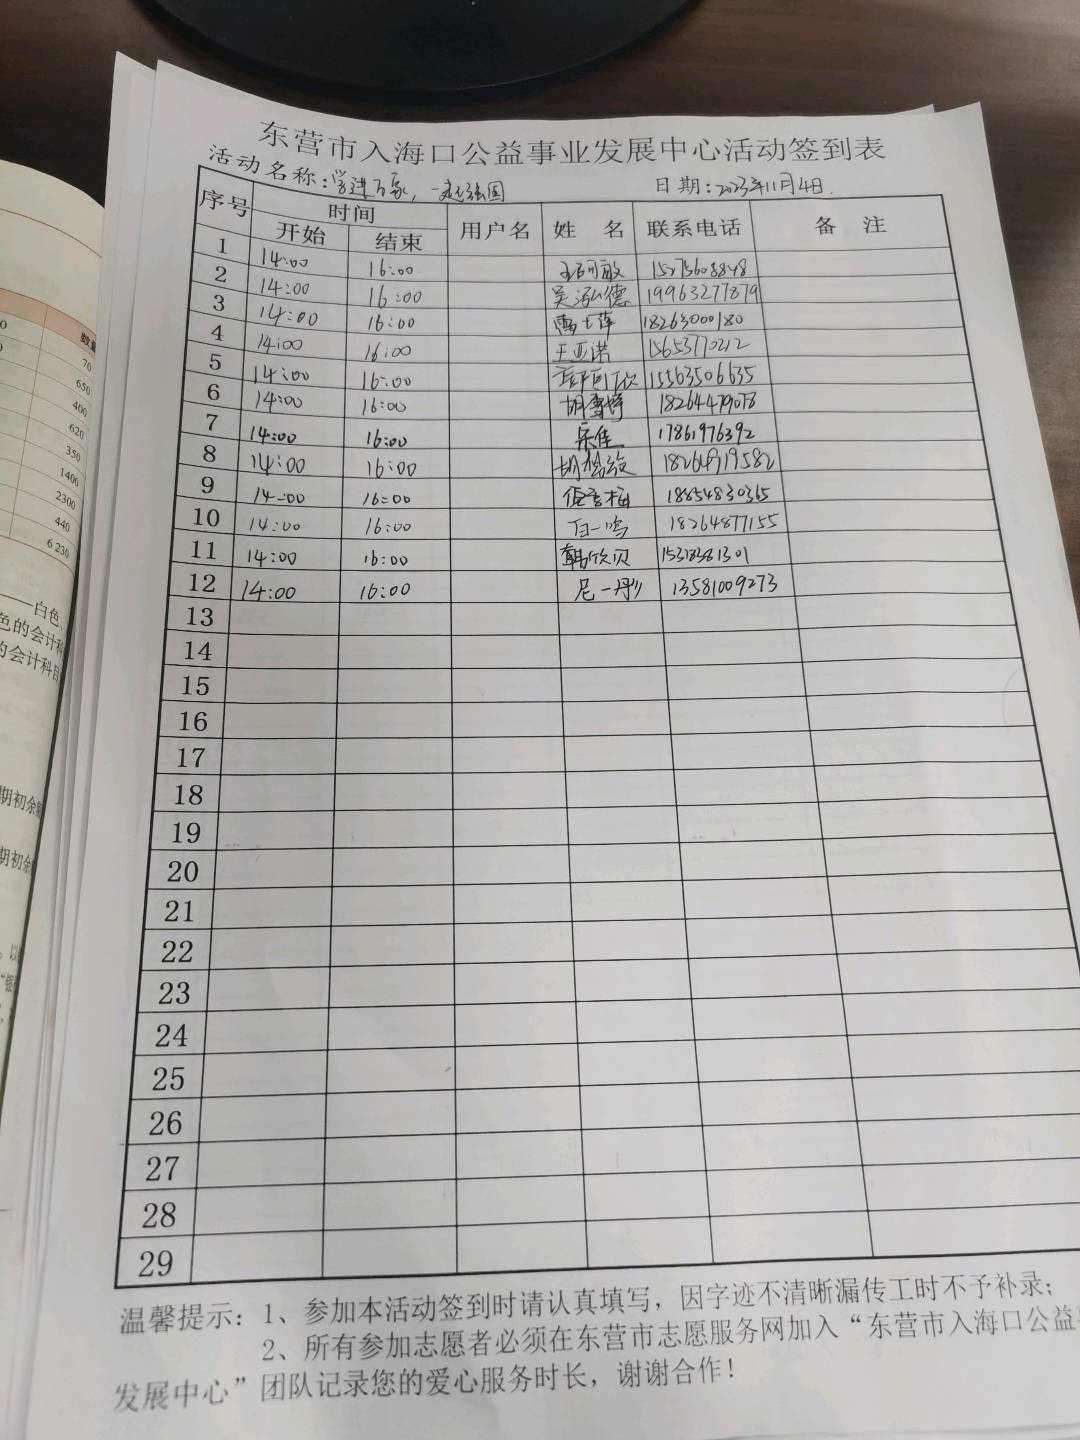 东营市入海口公益事业发展中心活动签到表
活动名称：学进万家，一起强国 日期：2023年11月4日
序号 时间 用户名 姓 名 联系电话 备 注
开始 结束
1 14:00 16:00
2 14:00 16:00 吴泓德 19963277879
3 14:00 16:00 18263000180
4 14:00 16:00 王亚诺 15653770212
5 14:00 16:00 15563506635
6 14:00 16:00 胡雪婷 18264479078
7 14:00 16:00 乐佳 17861976392
8 14:00 16:00 18264919582
9 14:00 16:00 18854830365
10 14:00 16:00 白一鸣 18264877155
11 14:00 16:00 韩欣贝 15318381301
12 14:00 16:00 尼一丹 13581009273
13
14
15
16
17
18
19
20
21
22
23
24
25
26
27
28
29
温馨提示：1、参加本活动签到时请认真填写，因字迹不清晰漏传工时不予补录；
2、所有参加志愿者必须在东营市志愿服务网加入“东营市入海口公益
发展中心”团队记录您的爱心服务时长，谢谢合作！
数
70
650
400
620
350
1400
2300
440
6 230
——白色、
色的会计科
的会计科目
期初余额
期初余